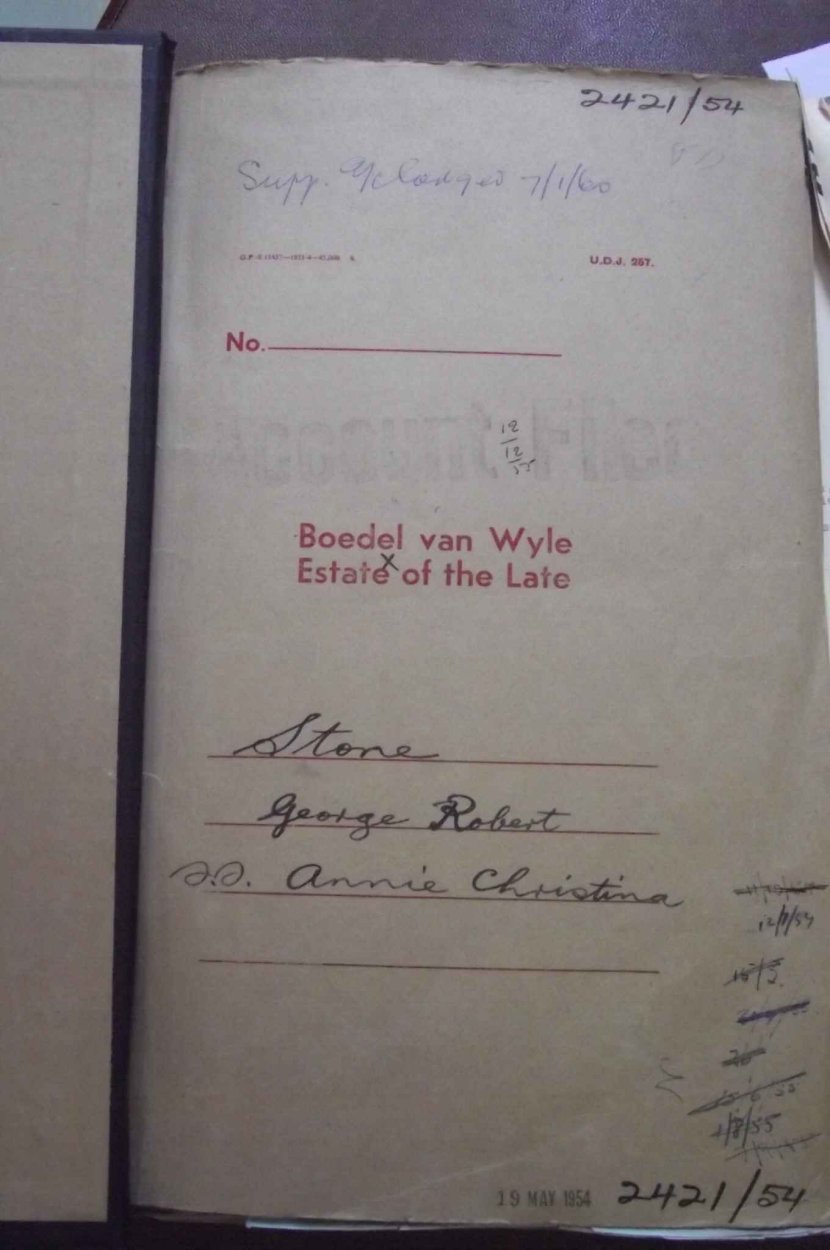 2421/54
Supp. a/c lodged 7/1/60
U.D.J. 257.
No.
12
12
55
Boedel van Wyle
Estate x of the Late
Stone
George Robert
s.s. Annie Christina
12/1/54
1/8/55
19 MAY 1954 2421/54